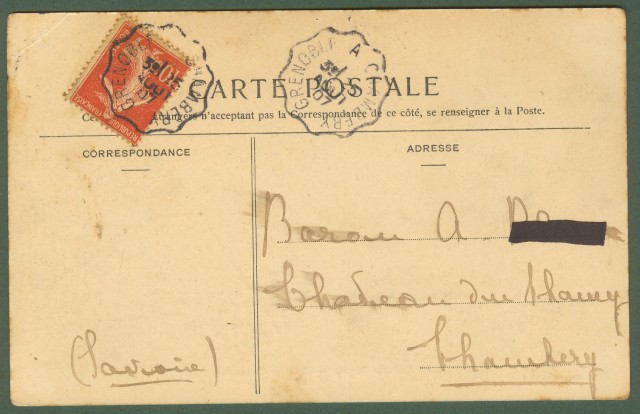 GRENOBLE A CHAMBERY
GRENOBLE A CHAMBERY
AOU
07
10
RÉPUBLIQUE FRANÇAISE
CARTE POSTALE
étrangers n'acceptant pas la Correspondance de ce côté, se renseigner à la Poste.
CORRESPONDANCE
ADRESSE
Baron A
Chateau du
Chambery
(Savoie)